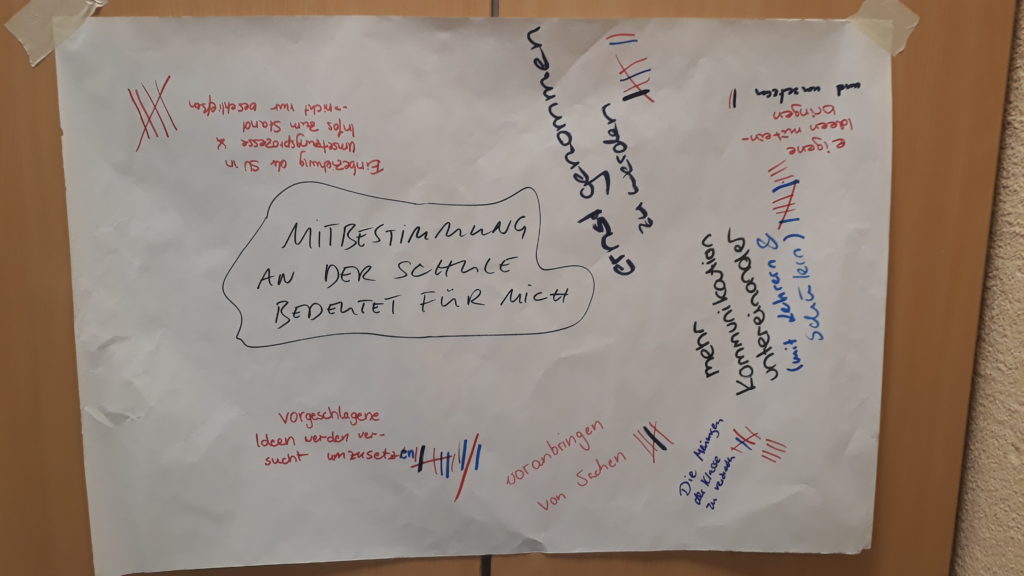 MITBESTIMMUNG
AN DER SCHULE
BEDEUTET FÜR MICH
Einbeziehung der SU in
Umsetzungsprozesse &
Infos zum Stand
→ nicht nur beschließen
ernst genommen
zu werden
eigene
Ideen miteinbringen
und umsetzen
mehr
Kommunikation
untereinander
(mit Lehrern &
Schülern)
Die Meinungen
der Klasse
zu vertreten
voranbringen
von Sachen
vorgeschlagene
Ideen werden ver-
sucht umzusetzen